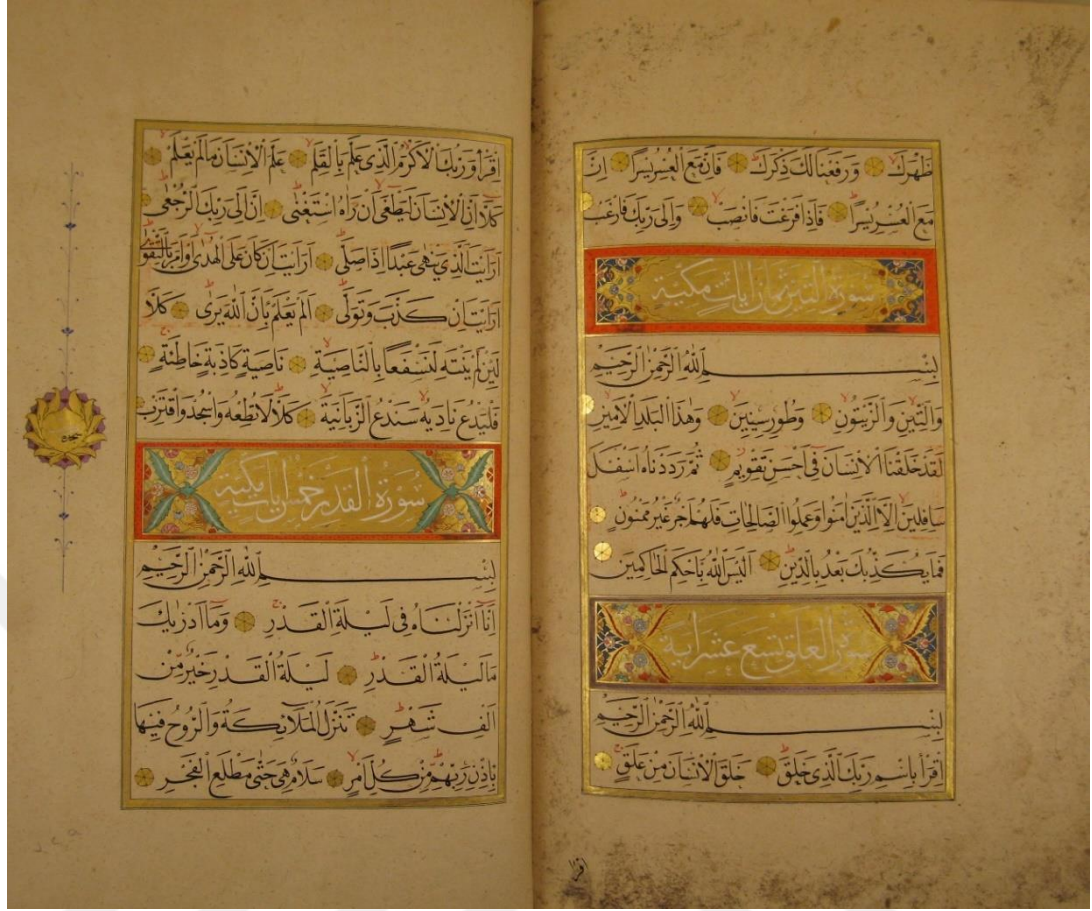 ظَهْرَكَ وَرَفَعْنَا لَكَ ذِكْرَكَ فَاِنَّ مَعَ الْعُسْرِ يُسْرًا اِنَّ
مَعَ الْعُسْرِ يُسْرًا فَاِذَا فَرَغْتَ فَانْصَبْ وَاِلٰى رَبِّكَ فَارْغَبْ
سورة التين ثمان ايات مكية
بِسْمِ اللّٰهِ الرَّحْمٰنِ الرَّحٖيمِ
وَالتّٖينِ وَالزَّيْتُونِ وَطُورِ سٖينٖينَ وَهٰذَا الْبَلَدِ الْاَمٖينِ
لَقَدْ خَلَقْنَا الْاِنْسَانَ فٖى اَحْسَنِ تَقْوٖيمٍ ثُمَّ رَدَدْنَاهُ اَسْفَلَ
سَافِلٖينَ اِلَّا الَّذٖينَ اٰمَنُوا وَعَمِلُوا الصَّالِحَاتِ فَلَهُمْ اَجْرٌ غَيْرُ مَمْنُونٍ
فَمَا يُكَذِّبُكَ بَعْدُ بِالدّٖينِ اَلَيْسَ اللّٰهُ بِاَحْكَمِ الْحَاكِمٖينَ
سورة العلق تسع عشر اية
بِسْمِ اللّٰهِ الرَّحْمٰنِ الرَّحٖيمِ
اِقْرَأْ بِاسْمِ رَبِّكَ الَّذٖى خَلَقَ خَلَقَ الْاِنْسَانَ مِنْ عَلَقٍ
اقرا
اِقْرَأْ وَرَبُّكَ الْاَكْرَمُ الَّذٖى عَلَّمَ بِالْقَلَمِ عَلَّمَ الْاِنْسَانَ مَا لَمْ يَعْلَمْ
كَلَّا اِنَّ الْاِنْسَانَ لَيَطْغٰى اَنْ رَاٰهُ اسْتَغْنٰى اِنَّ اِلٰى رَبِّكَ الرُّجْعٰى
اَرَاَيْتَ الَّذٖى يَنْهٰى عَبْدًا اِذَا صَلّٰى اَرَاَيْتَ اِنْ كَانَ عَلَى الْهُدٰى اَوْ اَمَرَ بِالتَّقْوٰى
اَرَاَيْتَ اِنْ كَذَّبَ وَتَوَلّٰى اَلَمْ يَعْلَمْ بِاَنَّ اللّٰهَ يَرٰى كَلَّا
لَئِنْ لَمْ يَنْتَهِ لَنَسْفَعًا بِالنَّاصِيَةِ نَاصِيَةٍ كَاذِبَةٍ خَاطِئَةٍ
فَلْيَدْعُ نَادِيَهُ سَنَدْعُ الزَّبَانِيَةَ كَلَّا لَا تُطِعْهُ وَاسْجُدْ وَاقْتَرِبْ
سجده
سورة القدر خمس ايات مكية
بِسْمِ اللّٰهِ الرَّحْمٰنِ الرَّحٖيمِ
اِنَّا اَنْزَلْنَاهُ فٖى لَيْلَةِ الْقَدْرِ وَمَا اَدْرٰيكَ
مَا لَيْلَةُ الْقَدْرِ لَيْلَةُ الْقَدْرِ خَيْرٌ مِنْ
اَلْفِ شَهْرٍ تَنَزَّلُ الْمَلٰٓئِكَةُ وَالرُّوحُ فٖيهَا
بِاِذْنِ رَبِّهِمْ مِنْ كُلِّ اَمْرٍ سَلَامٌ هِىَ حَتّٰى مَطْلَعِ الْفَجْرِ